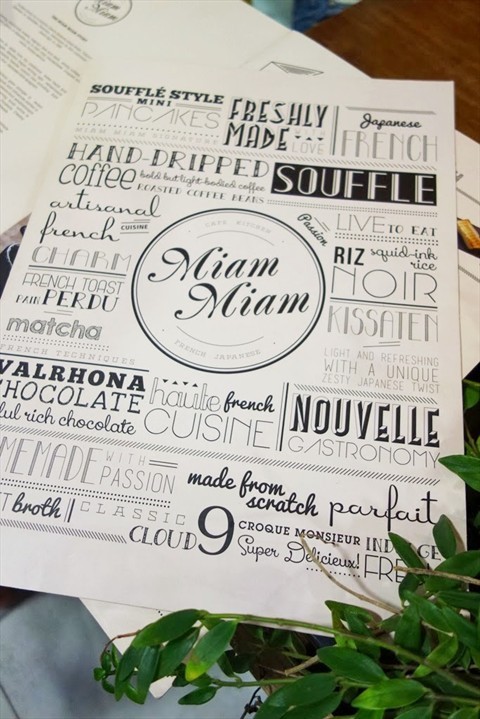 Miam
Miam
SOUFFLÉ STYLE
MINI
PANCAKES
MIAM MIAM SIGNATURE
FRESHLY
MADE WITH
LOVE
Japanese
FRENCH
HAND-DRIPPED
coffee bold but light-bodied coffee
ROASTED COFFEE BEANS
SOUFFLE
artisanal
french CUISINE
CHARM
FRENCH TOAST
PAIN PERDU
matcha
FRENCH TECHNIQUES
CAFE KITCHEN
Miam
Miam
FRENCH JAPANESE
Passion
LIVE TO EAT
RIZ squid-ink
rice
NOIR
KISSATEN
LIGHT AND REFRESHING
WITH A UNIQUE
ZESTY JAPANESE TWIST
VALRHONA
CHOCOLATE
ful rich chocolate
haute french
CUISINE
NOUVELLE
GASTRONOMY
MEMADE WITH
PASSION
made from
scratch
parfait
broth
CLASSIC
CLOUD 9
CROQUE MONSIEUR
Super Delicieux!